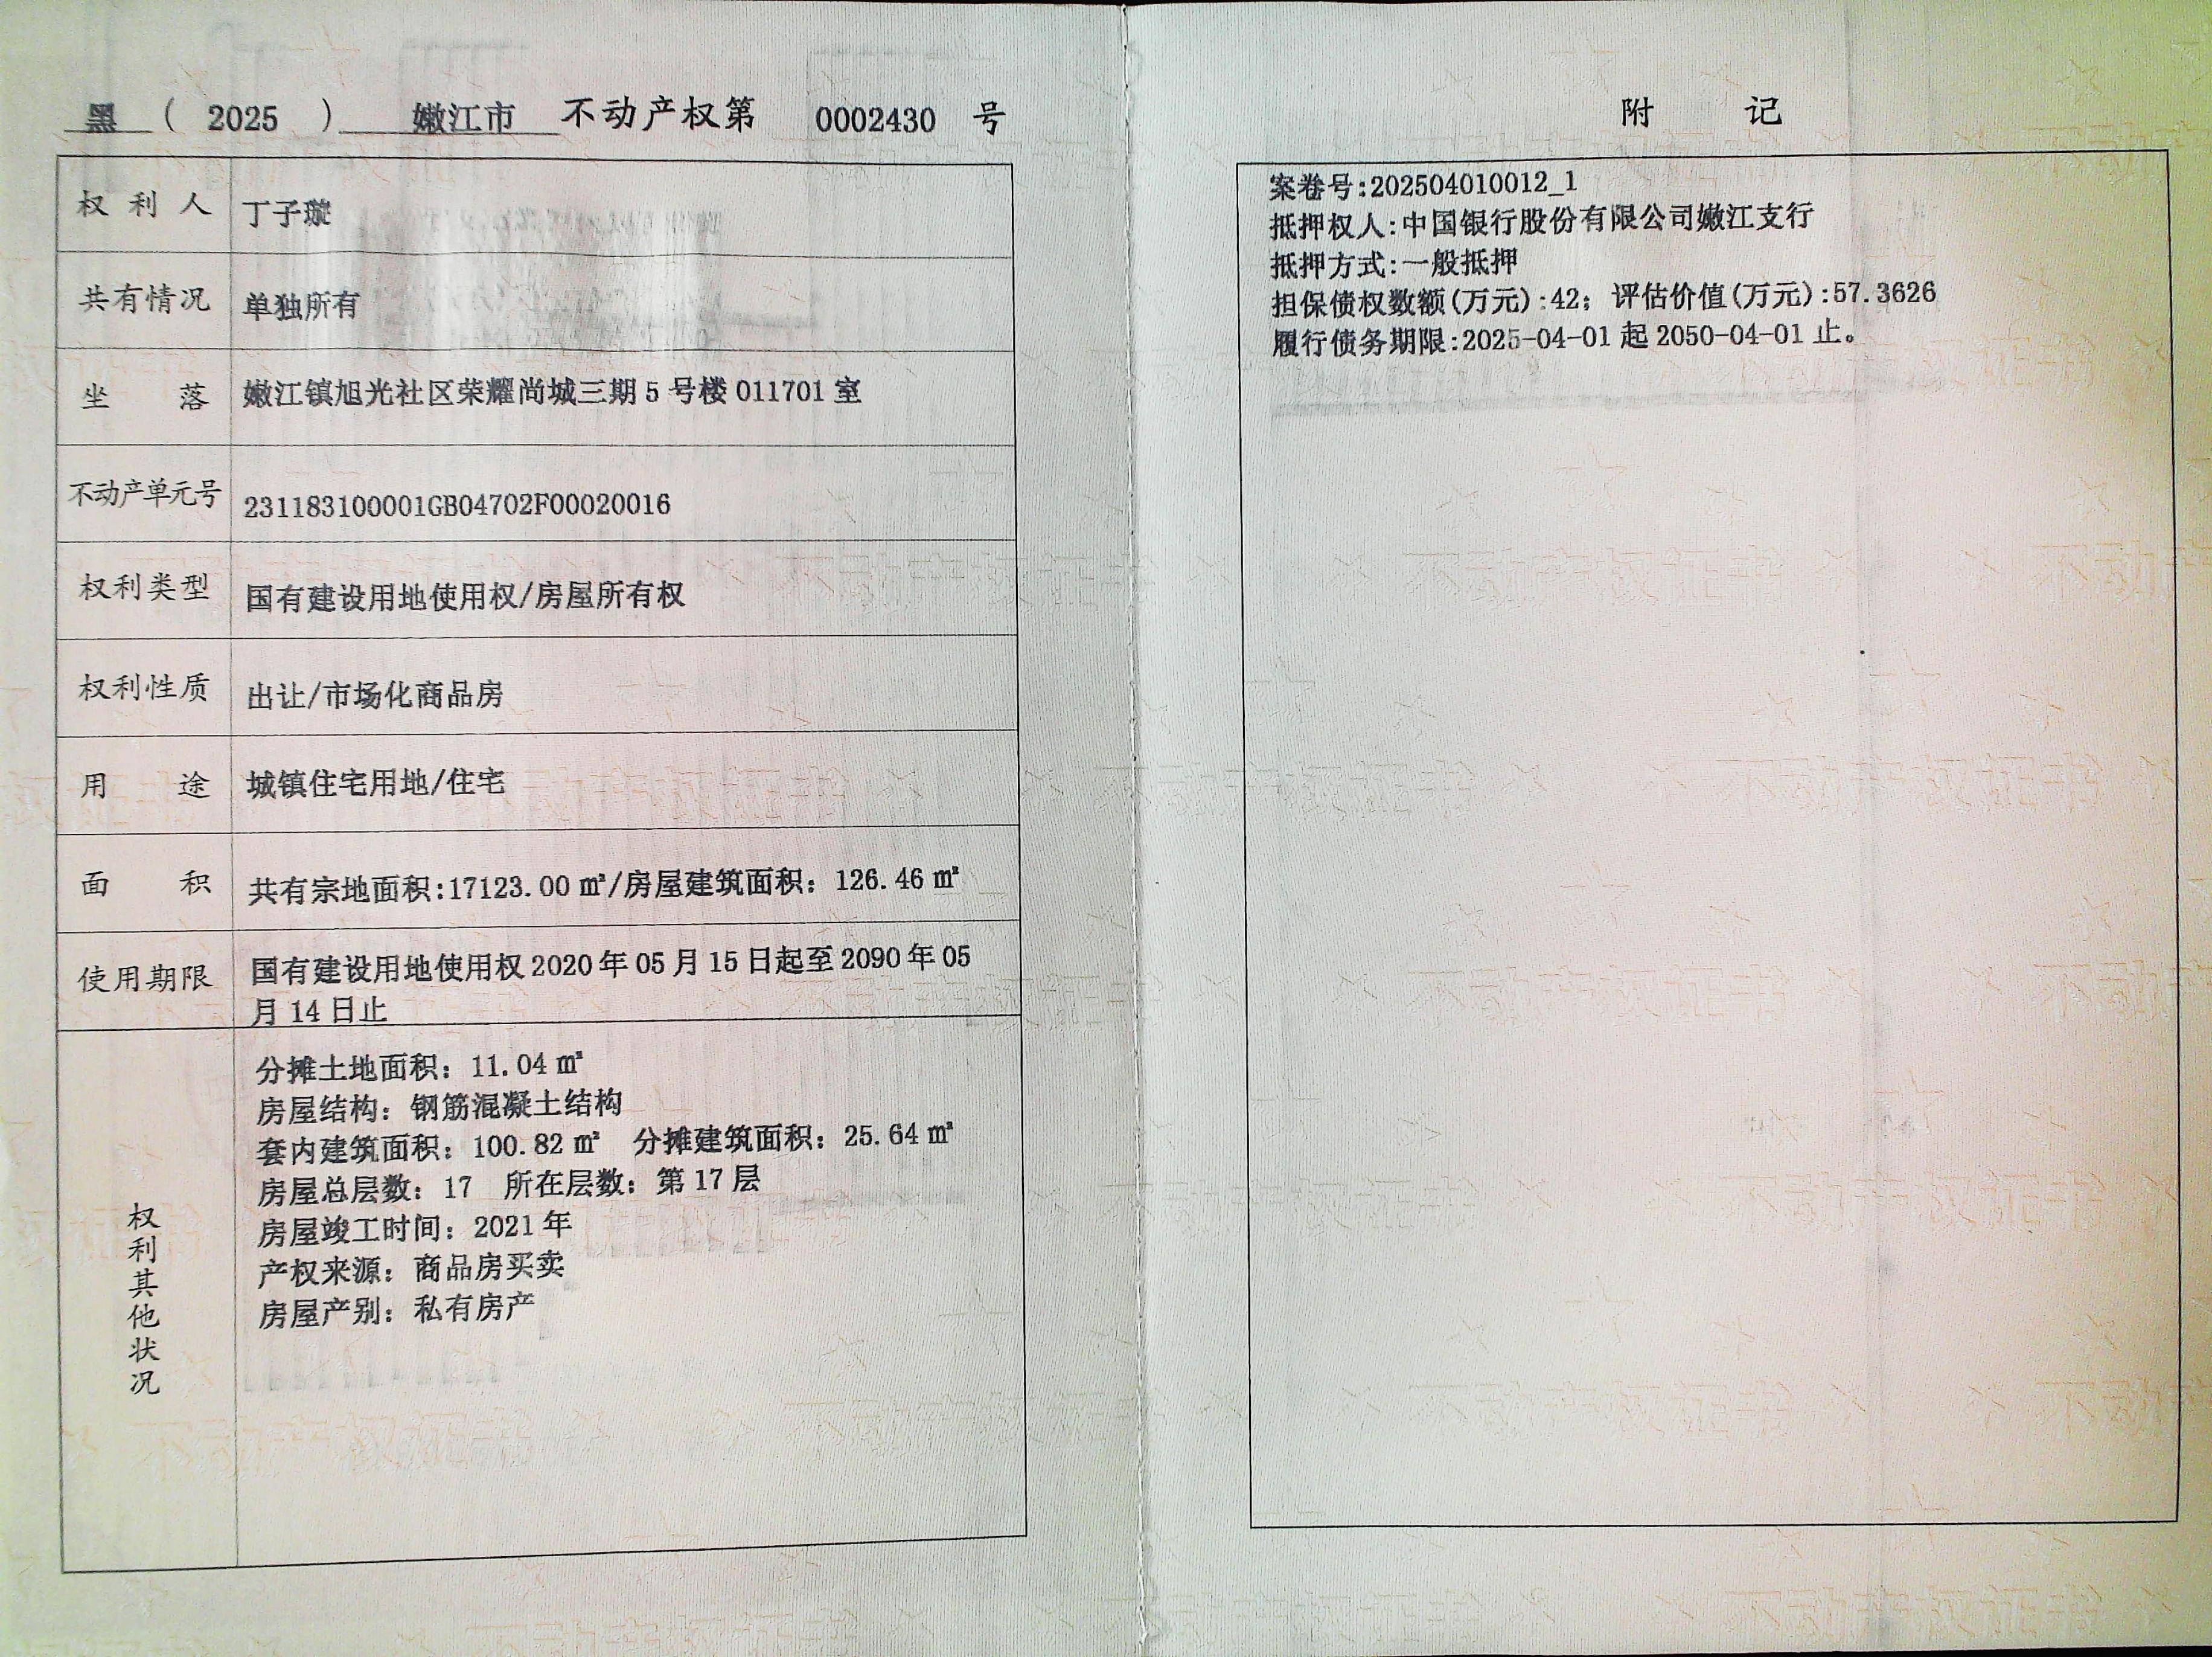 黑 ( 2025 ) 嫩江市 不动产权第 0002430 号
权利人 丁子璇
共有情况 单独所有
坐落 嫩江镇旭光社区荣耀尚城三期 5 号楼 011701 室
不动产单元号 231183100001GB04702F00020016
权利类型 国有建设用地使用权/房屋所有权
权利性质 出让/市场化商品房
用途 城镇住宅用地/住宅
面积 共有宗地面积:17123.00 ㎡/房屋建筑面积：126.46 ㎡
使用期限 国有建设用地使用权 2020 年 05 月 15 日起至 2090 年 05
月 14 日止
权利其他状况
分摊土地面积：11.04 ㎡
房屋结构：钢筋混凝土结构
套内建筑面积：100.82 ㎡ 分摊建筑面积：25.64 ㎡
房屋总层数：17 所在层数：第 17 层
房屋竣工时间：2021 年
产权来源：商品房买卖
房屋产别：私有房产
附记
案卷号:202504010012_1
抵押权人:中国银行股份有限公司嫩江支行
抵押方式:一般抵押
担保债权数额(万元):42；评估价值(万元):57.3626
履行债务期限:2025-04-01 起 2050-04-01 止。